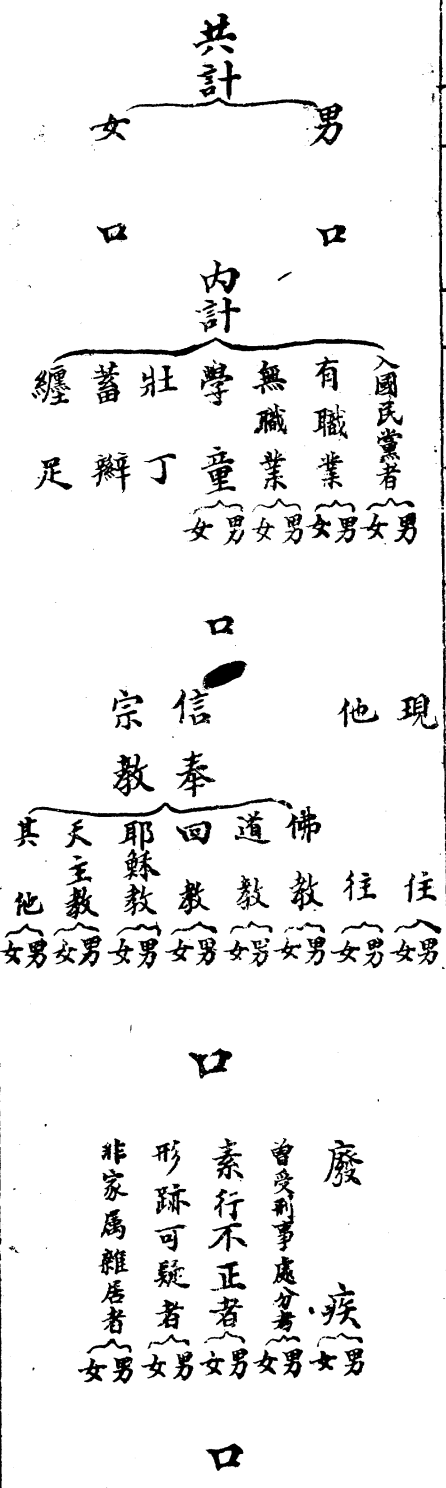 共計
男 女
口 口
內計
入國民黨者 男 女
有職業 男 女
無職業 男 女
學童 男 女
壯丁
蓄辮
纏足
口
現住 男 女
他往 男 女
信奉宗教
佛教 男 女
道教 男 女
回教 男 女
耶穌教 男 女
天主教 男 女
其他 男 女
口
廢疾 男 女
曾受刑事處分者 男 女
素行不正者 男 女
形跡可疑者 男 女
非家属雜居者 男 女
口